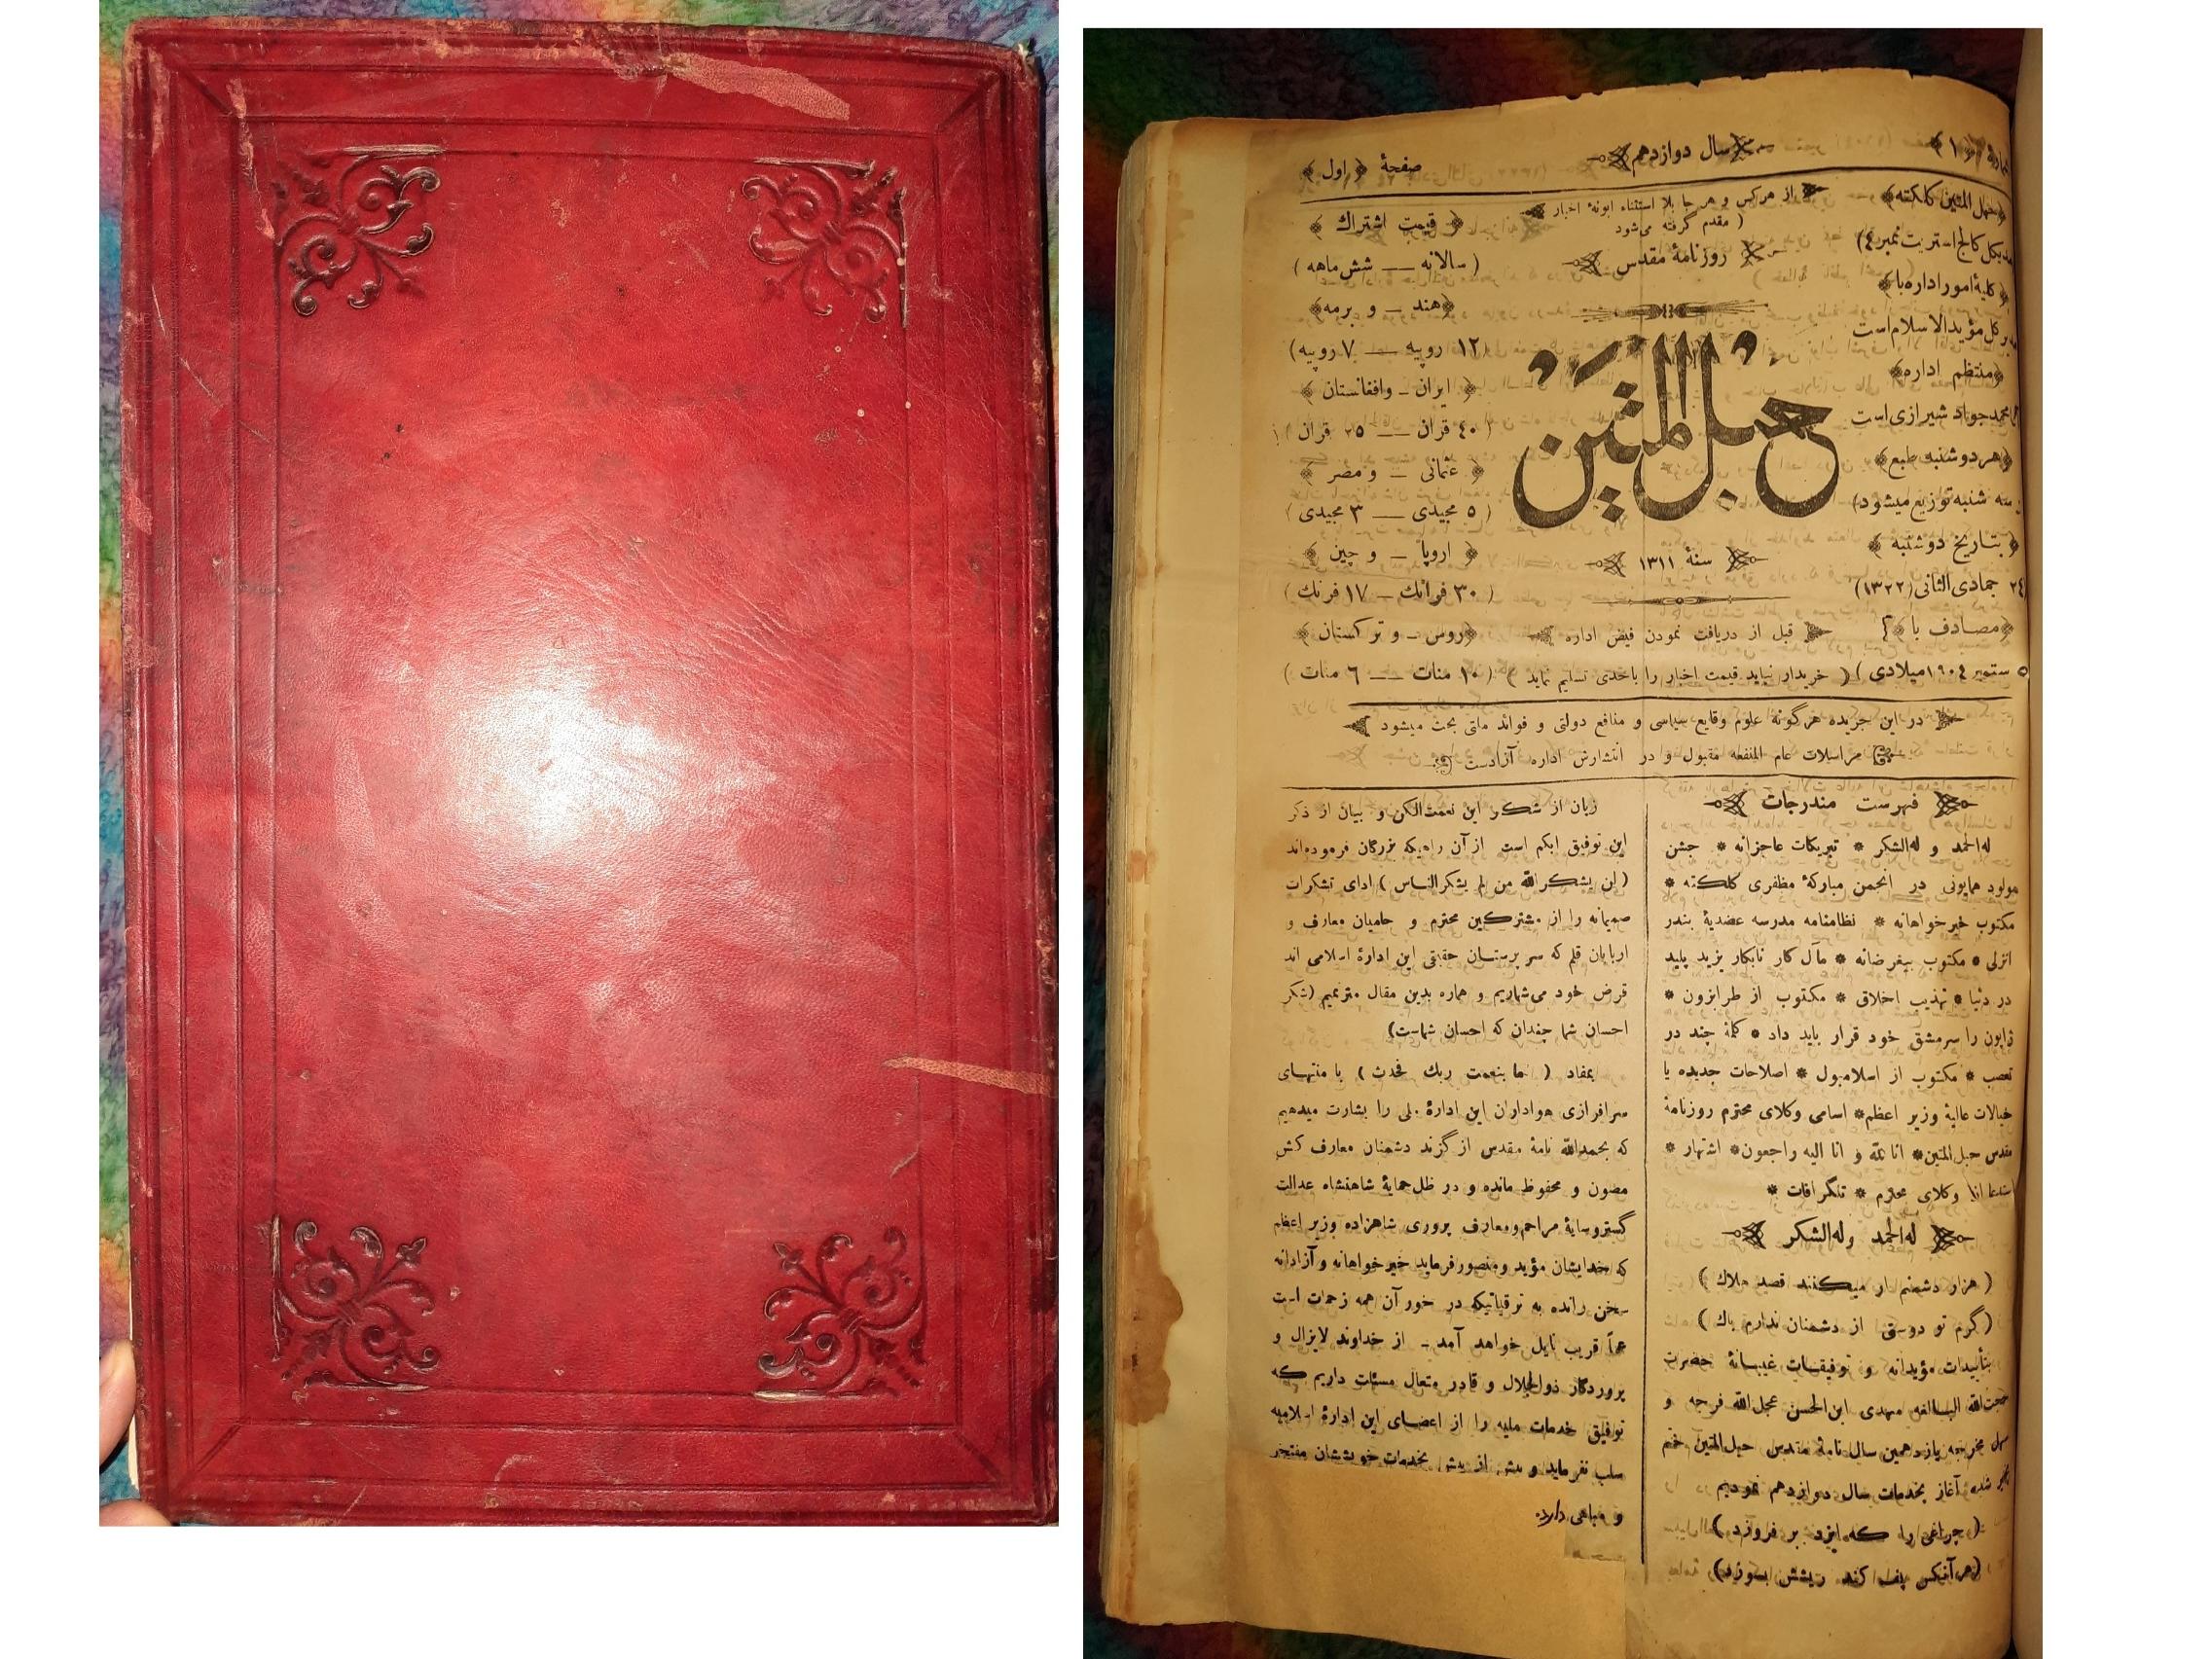 سال دوازدهم
صفحهٔ ﴿ اول ﴾
﴿حبل المتین کلکته﴾
مدیکل کالج استریت نمبر ٤)
﴿ کلیهٔ امور اداره با﴾
مدیر کل مؤید الاسلام است
﴿منتظم اداره﴾
محمد جواد شیرازی است
﴿هر دوشنبه طبع﴾
سه شنبه توزیع میشود)
﴿ بتاریخ دوشنبه ﴾
٢٤ جمادی الثانی (١٣٢٢)
﴿مصادف با﴾
٥ ستمبر ١٩٠٤ میلادی )
از هر کس و هر جا بلا استثناء ابونهٔ اخبار
( مقدم گرفته می‌شود
روزنامهٔ مقدس
حبل المتین
سنهٔ ١٣١١
قبل از دریافت نمودن قبض اداره
( خریدار نباید قیمت اخبار را باحدی تسلیم نماید )
﴿ قیمت اشتراك ﴾
( سالانه — شش ماهه )
﴿هند — و برمه﴾
(١٢ روپیه — ٧ روپیه)
﴿ ایران — وافغانستان ﴾
( ٤٠ قران — ٢٥ قران )
﴿ عثمانی — و مصر ﴾
( ٥ مجیدی — ٣ مجیدی )
﴿ اروپا — و چین ﴾
( ٣٠ فرانك — ١٧ فرنك )
﴿روس — و ترکستان ﴾
( ١٠ منات — ٦ منات )
در این جریده هرگونه علوم وقایع سیاسی و منافع دولتی و فوائد ملتی بحث میشود
مراسلات عام المنفعه مقبول و در انتشارش اداره آزادست
فهرست مندرجات
له الحمد و له الشکر * تبریکات عاجزانه * جشن
مولود همایونی در انجمن مبارکهٔ مظفری کلکته *
مکتوب خیرخواهانه * نظامنامه مدرسه عضدیهٔ بندر
انزلی * مکتوب بیغرضانه * مآل کار نابکار یزید پلید
در دنیا * تهذیب اخلاق * مکتوب از طرابزون *
ژاپون را سرمشق خود قرار باید داد * کلمهٔ چند در
تعصب * مکتوب از اسلامبول * اصلاحات جدیده یا
خیالات عالیهٔ وزیر اعظم* اسامی وکلای محترم روزنامهٔ
مقدس حبل المتین* انا لله و انا الیه راجعون* اشتهار *
وکلای محترم * تلگرافات *
له الحمد وله الشکر
( هزار دشمنم ار میکنند قصد هلاك )
( گرم تو دوستی از دشمنان ندارم باك )
بتأییدات مؤیدانه و توفیقات غیبانهٔ حضرت
حجت الله البالغه مهدی ابن الحسن عجل الله فرجه و
سهل مخرجه یازدهمین سال نامهٔ مقدس حبل المتین ختم
شده آغاز بخدمات سال دوازدهم نمودیم
( چراغی را که ایزد بر فروزد )
(هر آنکس پف کند ریشش بسوزد)
زبان از شکر این نعمت الکن و بیان از ذکر
این توفیق ابکم است از آن راهیکه بزرگان فرموده‌اند
( لن یشکر الله من لم یشکر الناس ) ادای تشکرات
صمیمانه را از مشترکین محترم و حامیان معارف و
اربابان قلم که سرپرستان حقیقی این ادارهٔ اسلامی اند
فرض خود می‌شماریم و هماره بدین مقال مترنمیم (شکر
احسان شما چندان که احسان شماست)
بمفاد ( اما بنعمت ربك فحدث ) با منتهای
سرافرازی هواداران این ادارهٔ ملی را بشارت میدهیم
که بحمدالله نامهٔ مقدس از گزند دشمنان معارف کش
مصون و محفوظ مانده و در ظل حمایهٔ شاهنشاه عدالت
گستر وسایهٔ مراحم ومعارف پروری شاهزاده وزیر اعظم
که خدایشان مؤید ومنصور فرماید خیرخواهانه و آزادانه
سخن رانده به ترقیاتیکه در خور آن همه زحمات است
عما قریب نایل خواهد آمد — از خداوند لایزال و
پروردگار ذوالجلال و قادر متعال مسئلت داریم که
توفیق خدمات ملیه را از اعضای این ادارهٔ اسلامیه
سلب نفرماید و بیش از پیش بخدمات خویششان مفتخر
و مباهی دارد.